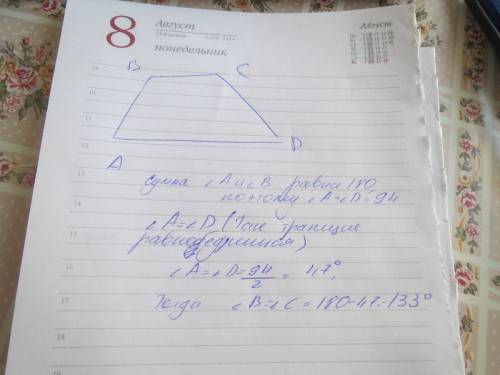 8
Август
понедельник
Август
B
C
A
D
сумма ∠A и ∠B равна 180,
поэтому ∠A+∠D=94
∠A=∠D (Так трапеция
равнобедренная)
∠A=∠D=94/2=47°
Тогда ∠B=∠C=180-47=133°
10
11
12
13
14
15
16
17
18